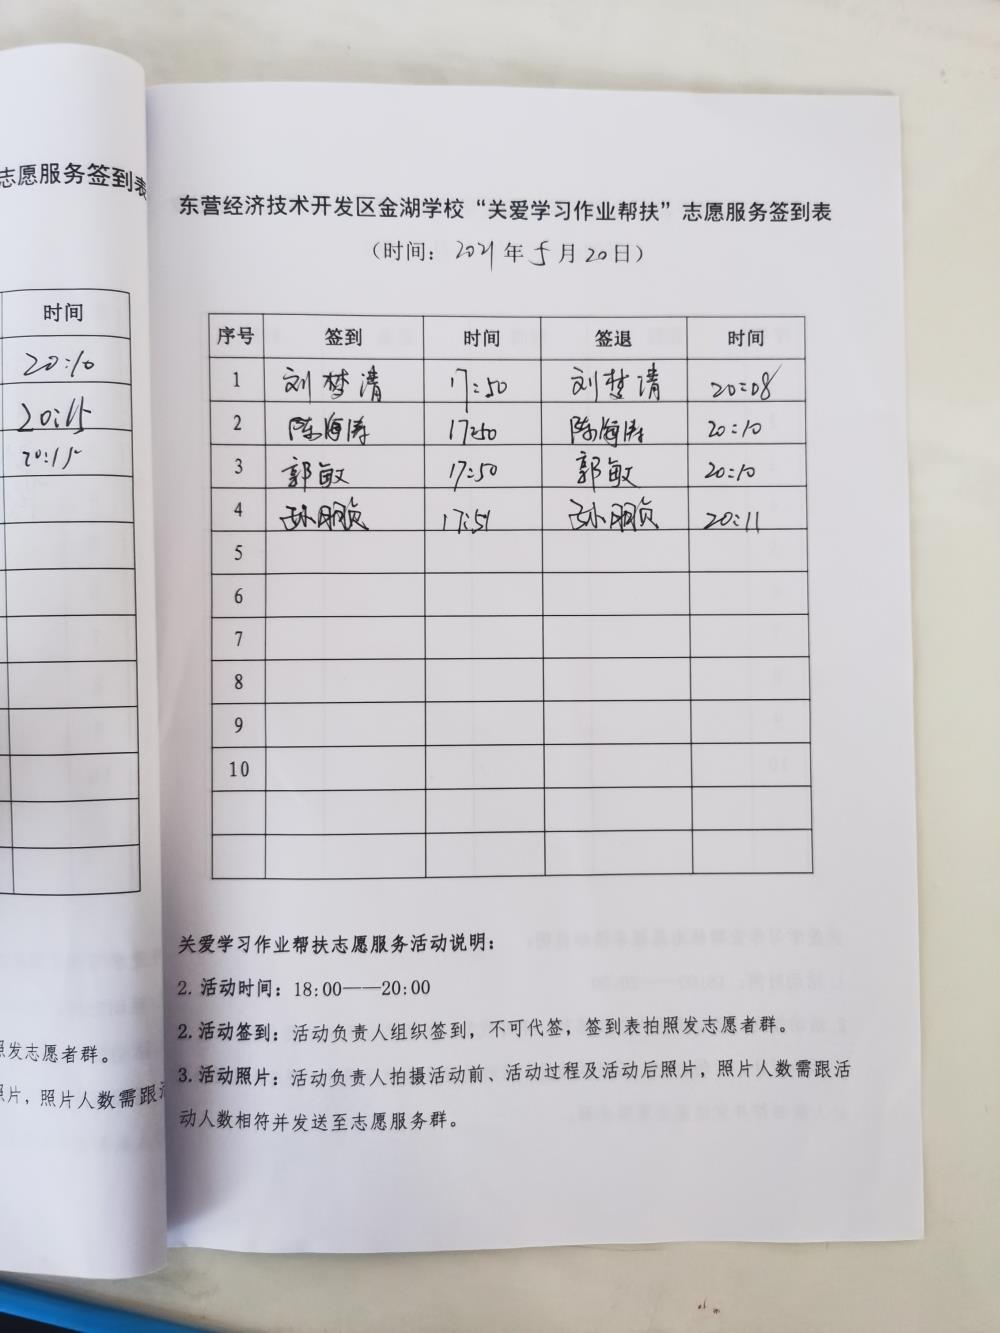 志愿服务签到表
时间
20:10
20:15
20:15
照发志愿者群。
照片，照片人数需跟活
东营经济技术开发区金湖学校“关爱学习作业帮扶”志愿服务签到表
（时间：2021年5月20日）
序号 签到 时间 签退 时间
1 刘梦清 17:50 刘梦清 20:08
2 陈海涛 17:50 陈海涛 20:10
3 郭敏 17:50 郭敏 20:10
4 孙明贞 17:51 孙明贞 20:11
5
6
7
8
9
10
关爱学习作业帮扶志愿服务活动说明：
2. 活动时间：18:00——20:00
2. 活动签到：活动负责人组织签到，不可代签，签到表拍照发志愿者群。
3. 活动照片：活动负责人拍摄活动前、活动过程及活动后照片，照片人数需跟活
动人数相符并发送至志愿服务群。